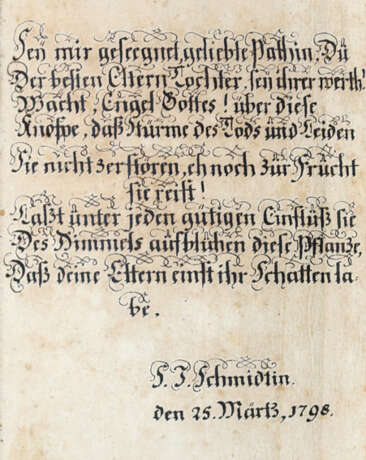 Sey mir geseegnet, geliebte Pathin, Dü
Der besten Eltern Tochter, sey ihrer werth!
Wacht, Engel Gottes! über diese
Knospe, daß Stürme des Tods und Leiden
Sie nicht zerstören, eh noch zür Frücht
sie reift!
Laßt ünter jeden gütigen Einflüß sie
Des Himmels aufblühen diese Pflanze,
Daß deine Eltern einst ihr Schatten la-
be.
S. J. Schmidtin.
den 25. Märtz, 1798.